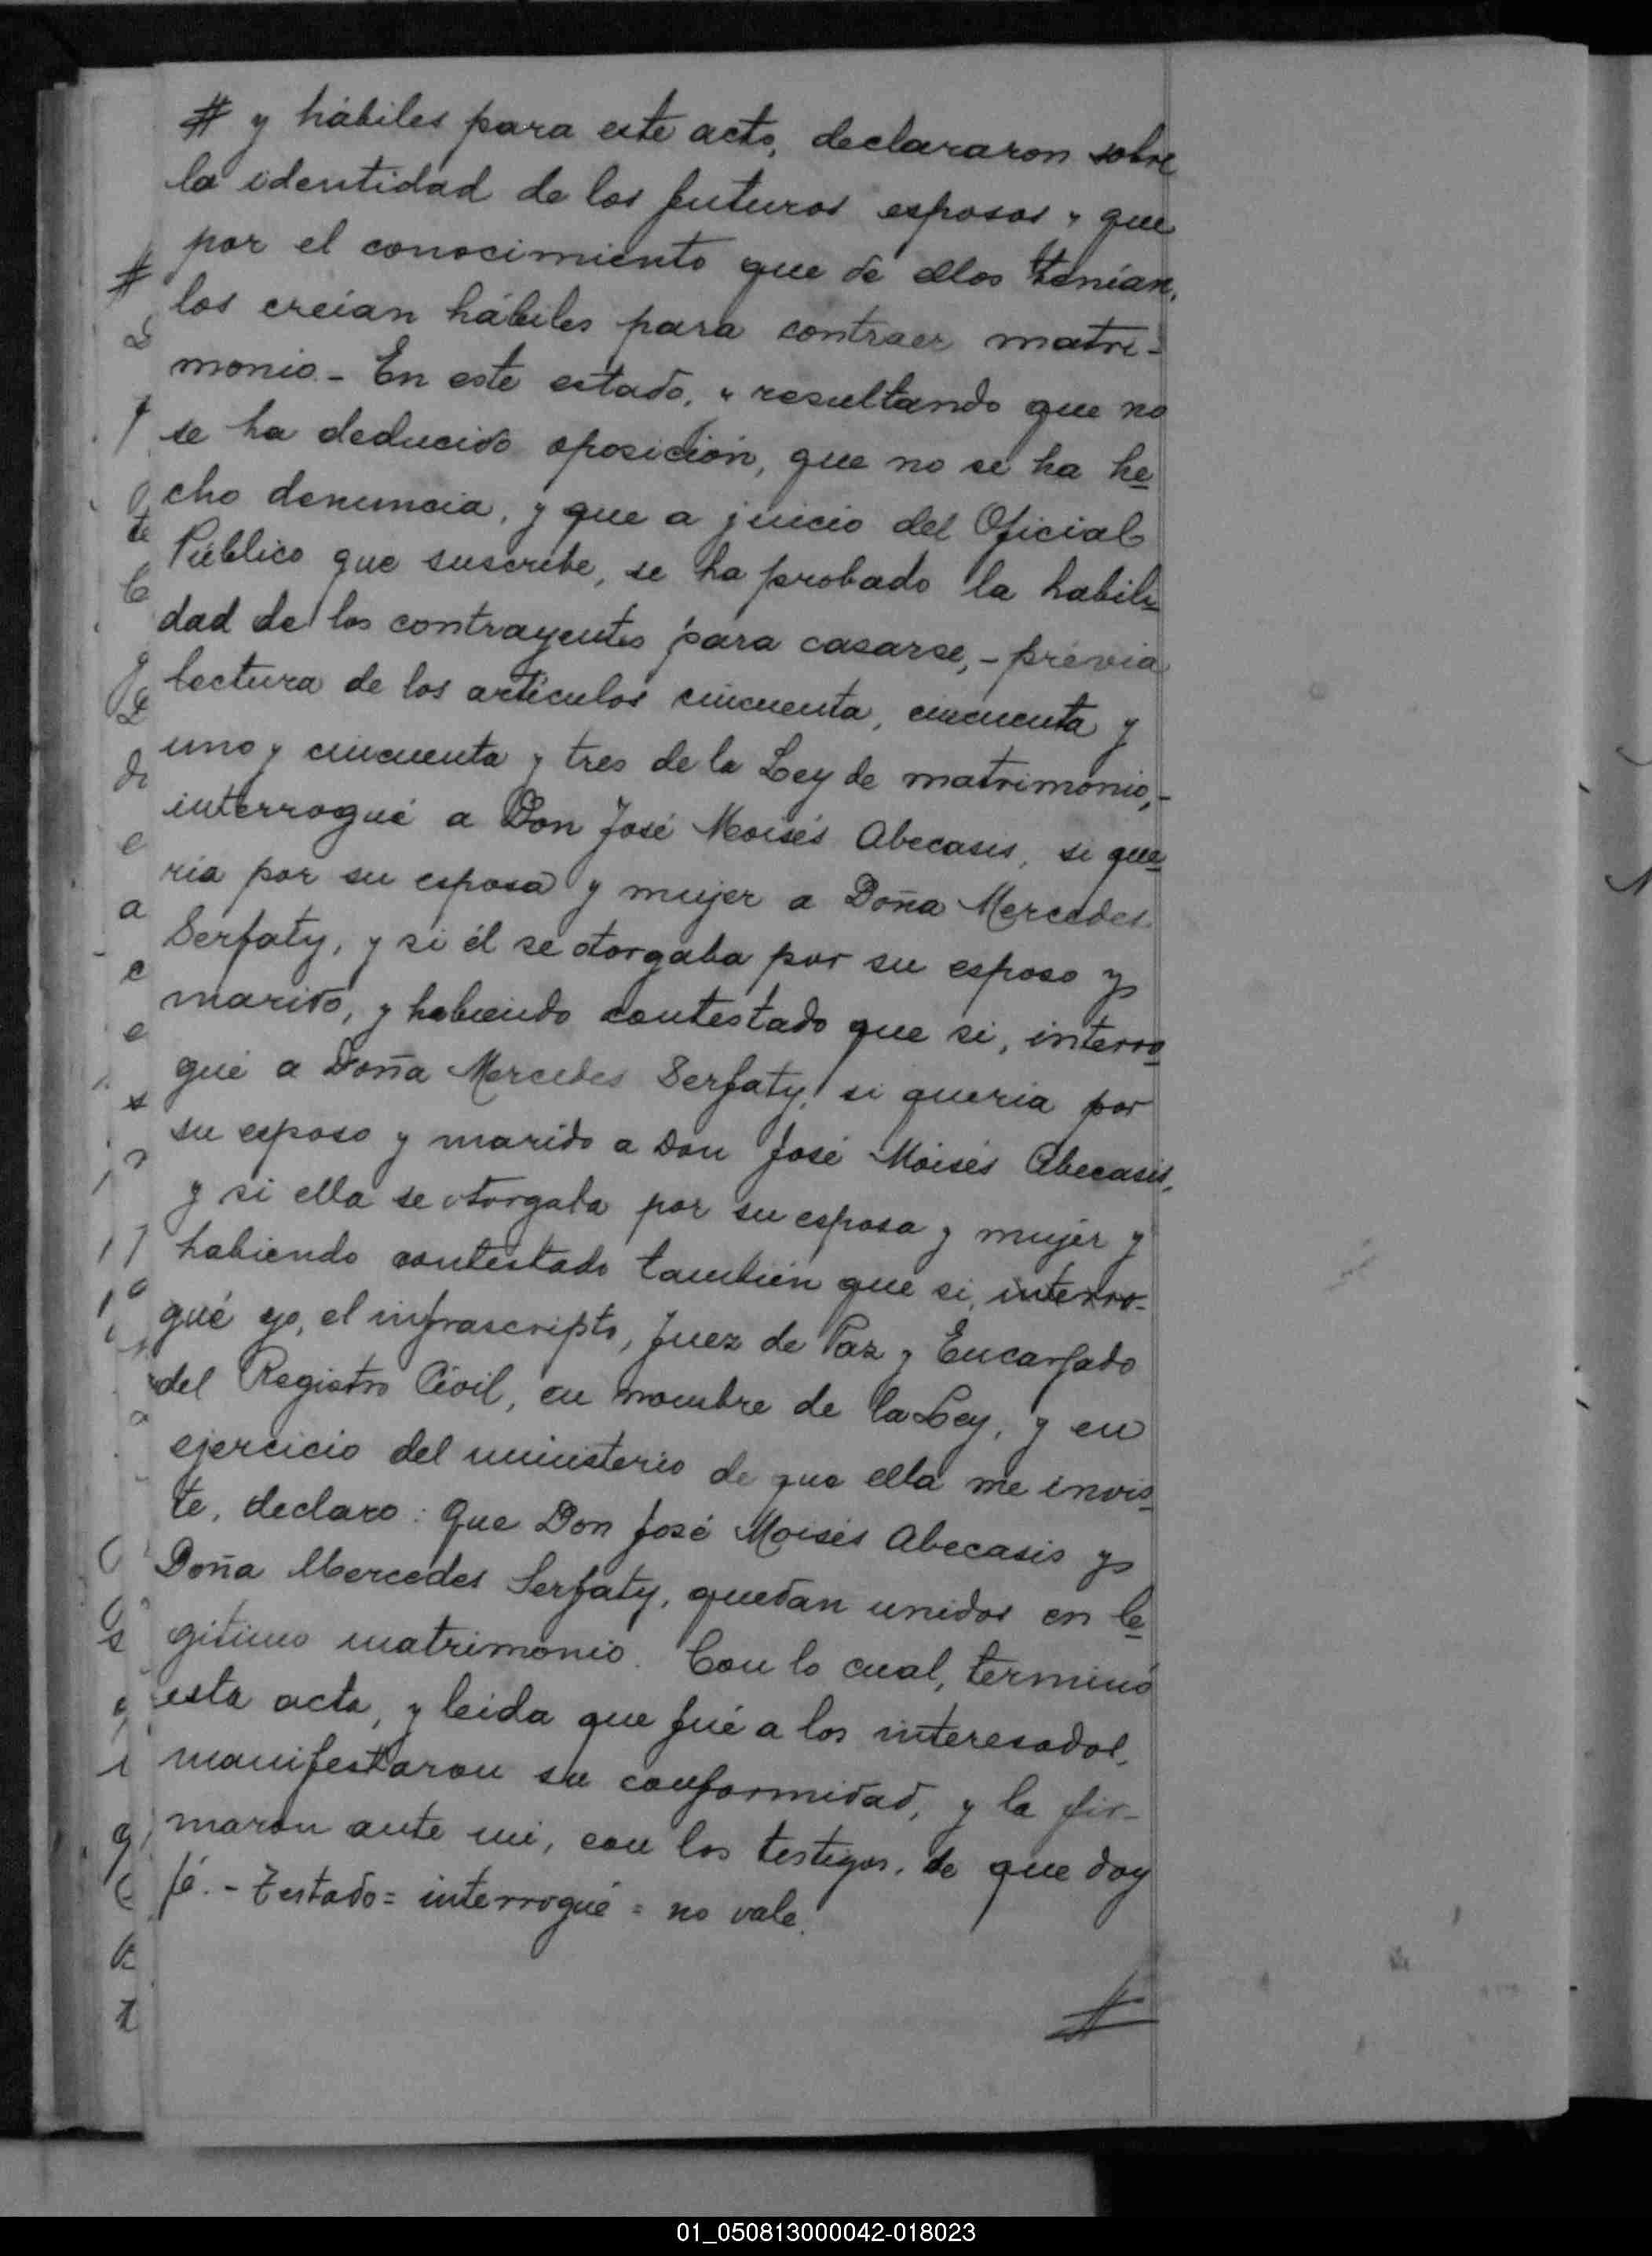 # y hábiles para este acto, declararon sobre
la identidad de los futuros esposos y que
por el conocimiento que de ellos tenían,
los creían hábiles para contraer matri-
monio.- En este estado, y resultando que no
se ha deducido oposición, que no se ha he
cho denuncia, y que a juicio del Oficial
Público que suscribe, se ha probado la habili
dad de los contrayentes para casarse,- prévia
lectura de los artículos cincuenta, cincuenta y
uno y cincuenta y tres de la Ley de matrimonio,-
interrogué a Don José Moisés Abecasis, si que
ría por su esposa y mujer a Doña Mercedes
Serfaty, y si él se otorgaba por su esposo y
marido, y habiendo contestado que si, interro
gué a Doña Mercedes Serfaty, si quería por
su esposo y marido a Don José Moisés Abecasis,
y si ella se otorgaba por su esposa y mujer y
habiendo contestado también que si, interro-
gué yo, el infrascripto, Juez de Paz y Encargado
del Registro Civil, en nombre de la Ley, y en
ejercicio del ministerio de que ella me invis
te, declaro: Que Don José Moisés Abecasis y
Doña Mercedes Serfaty, quedan unidos en le
gitimo matrimonio. Con lo cual, terminó
esta acta, y leida que fué a los interesados,
manifestaron su conformidad, y la fir-
maron ante mi, con los testigos, de que doy
fé.- Testado= interrogué = no vale.
01_050813000042-018023